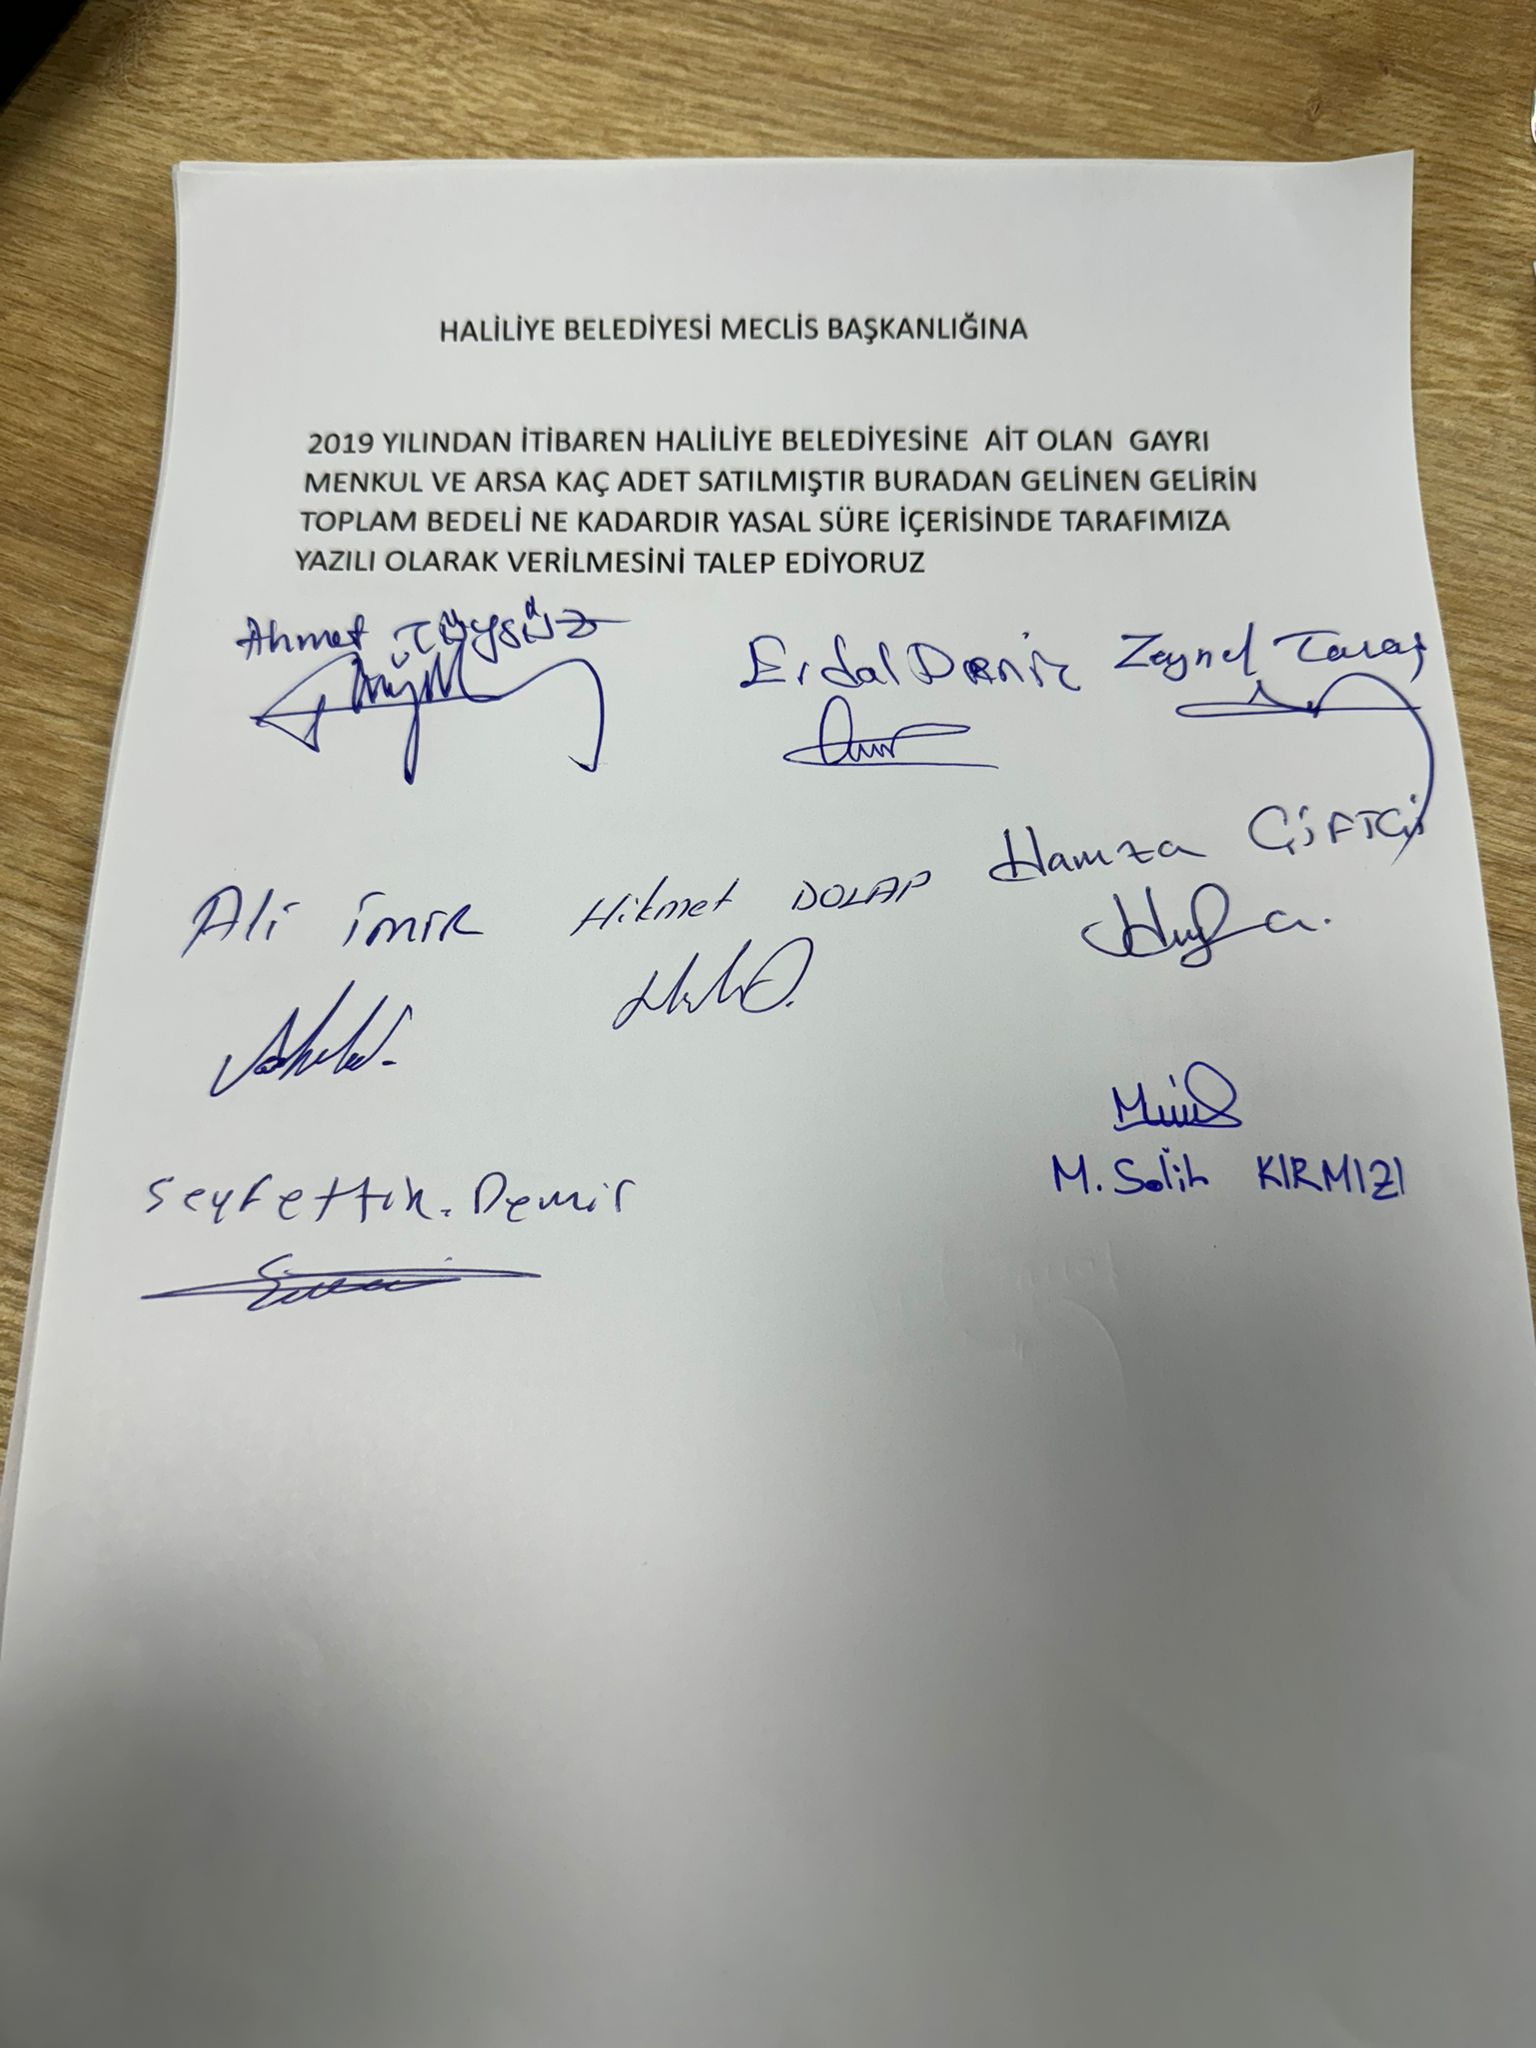 HALİLİYE BELEDİYESİ MECLİS BAŞKANLIĞINA
2019 YILINDAN İTİBAREN HALİLİYE BELEDİYESİNE AİT OLAN GAYRI
MENKUL VE ARSA KAÇ ADET SATILMIŞTIR BURADAN GELİNEN GELİRİN
TOPLAM BEDELİ NE KADARDIR YASAL SÜRE İÇERİSİNDE TARAFIMIZA
YAZILI OLARAK VERİLMESİNİ TALEP EDİYORUZ
Ahmet TÜYSÜZ
Erdal Deniz
Zeynel Taraş
Ali İmir
Hikmet DOLAP
Hamza ÇİFTÇİ
M. Salih KIRMIZI
Seyfettin. Demir